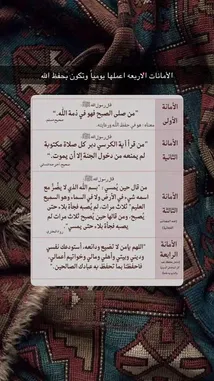 الأمانات الاربعه اعملها يومياً وتكون بحفظ الله
الأمانة
الأولى
قال رسول الله ﷺ
"من صلى الصبح فهو في ذمة اللّٰه."
صحيح مسلم
معناه : هو في حفظ الله ورعايته
الأمانة
الثانية
قال رسول الله ﷺ
"من قرأ آية الكرسي دبر كل صلاة مكتوبة
لم يمنعه من دخول الجنة إلا أن يموت."
الأمانة
الثالثة
قال رسول الله ﷺ
من قال حين يُمسي : "بسم الله الذي لا يضُرُّ مع
اسمه شيء في الأرض ولا في السماء، وهو السميع
العليم" ثلاث مرات، لم يُصبه فجأة بلاء حتى
يُصبح، ومن قالها حين يُصبح ثلاث مرات لم
يُصبه فجأة بلاء حتى يمسي.
الأمانة
الرابعة
"اللهم يامن لا تضيع ودائعه، أستودعك نفسي
وديني وبيتي وأهلي ومالي وخواتيم أعمالي،
فاحفظنا بما تحفظ به عبادك الصالحين."